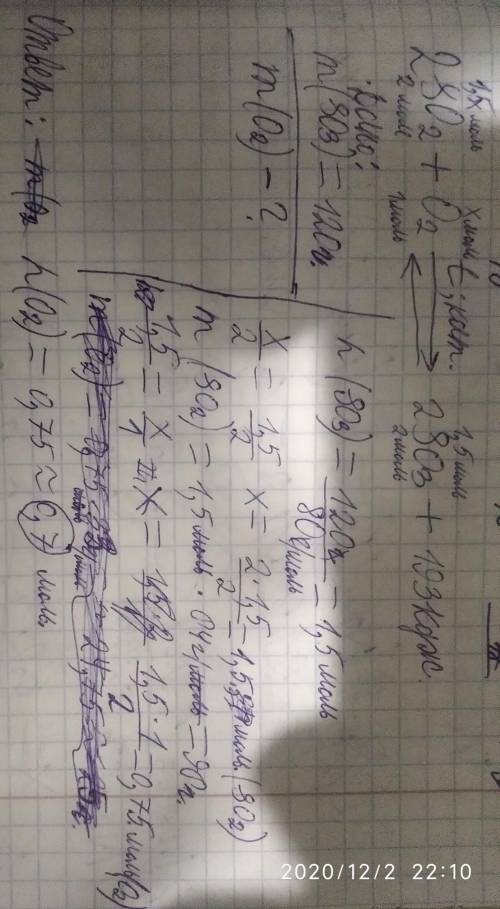 1,5x моль x моль 1,5 моль
2SO2 + O2 t, кат. ⇄ 2SO3 + 193 кДж.
2 моль 1 моль 2 моль
Дано:
m(SO3) = 120г.
m(O2) – ?
n(SO3) = 120г / 80г/моль = 1,5 моль
x/2 = 1,5/2 x = 2·1,5/2 = 1,5 моль (SO2)
m(SO2) = 1,5 моль · 64г/моль = 90г.
1,5/2 = x/1 x = 1,5·1/2 = 0,75 моль (O2)
Ответ: n(O2) = 0,75 ≈ 0,7 моль
2020/12/2 22:10